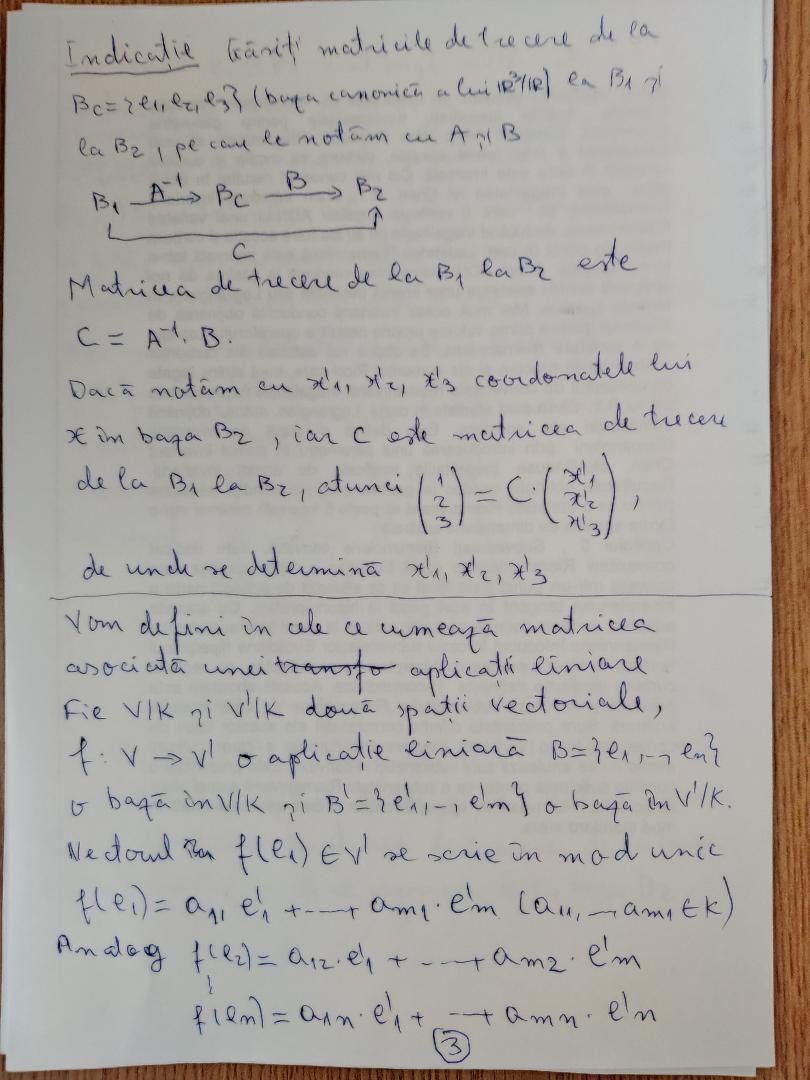 Indicație Găsiți matricile de trecere de la
Bc={e1,e2,e3} (baza canonică a lui ℝ³/ℝ) la B1 și
la B2, pe care le notăm cu A și B
B1 —A⁻¹→ Bc —B→ B2
C
Matricea de trecere de la B1 la B2 este
C = A⁻¹·B.
Dacă notăm cu x'1, x'2, x'3 coordonatele lui
x în baza B2, iar C este matricea de trecere
de la B1 la B2, atunci (1 2 3) = C·(x'1 x'2 x'3),
de unde se determină x'1, x'2, x'3
Vom defini în cele ce urmează matricea
asociată unei transfo aplicații liniare
Fie V/K și V'/K două spații vectoriale,
f: V → V' o aplicație liniară B={e1,..., en}
o bază în V/K și B'={e'1,..., e'm} o bază în V'/K.
Vectorul f(e1) ∈ V' se scrie în mod unic
f(e1) = a11 e'1 +...+ am1·e'm (a11, ... am1 ∈ K)
Analog f(e2) = a12·e'1 + ...+ am2·e'm
f(en) = a1n·e'1 + ...+ amn·e'n
3